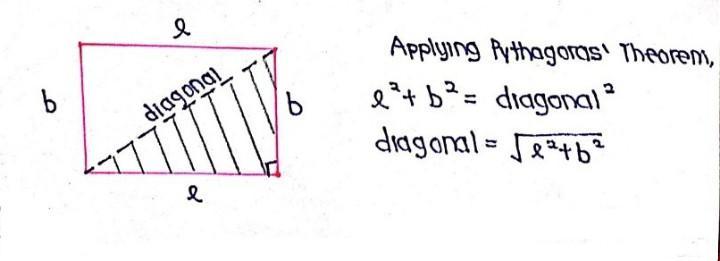 ℓ
b
diagonal
b
ℓ
Applying Pythagoras' Theorem,
ℓ² + b² = diagonal²
diagonal = √ℓ²+b²